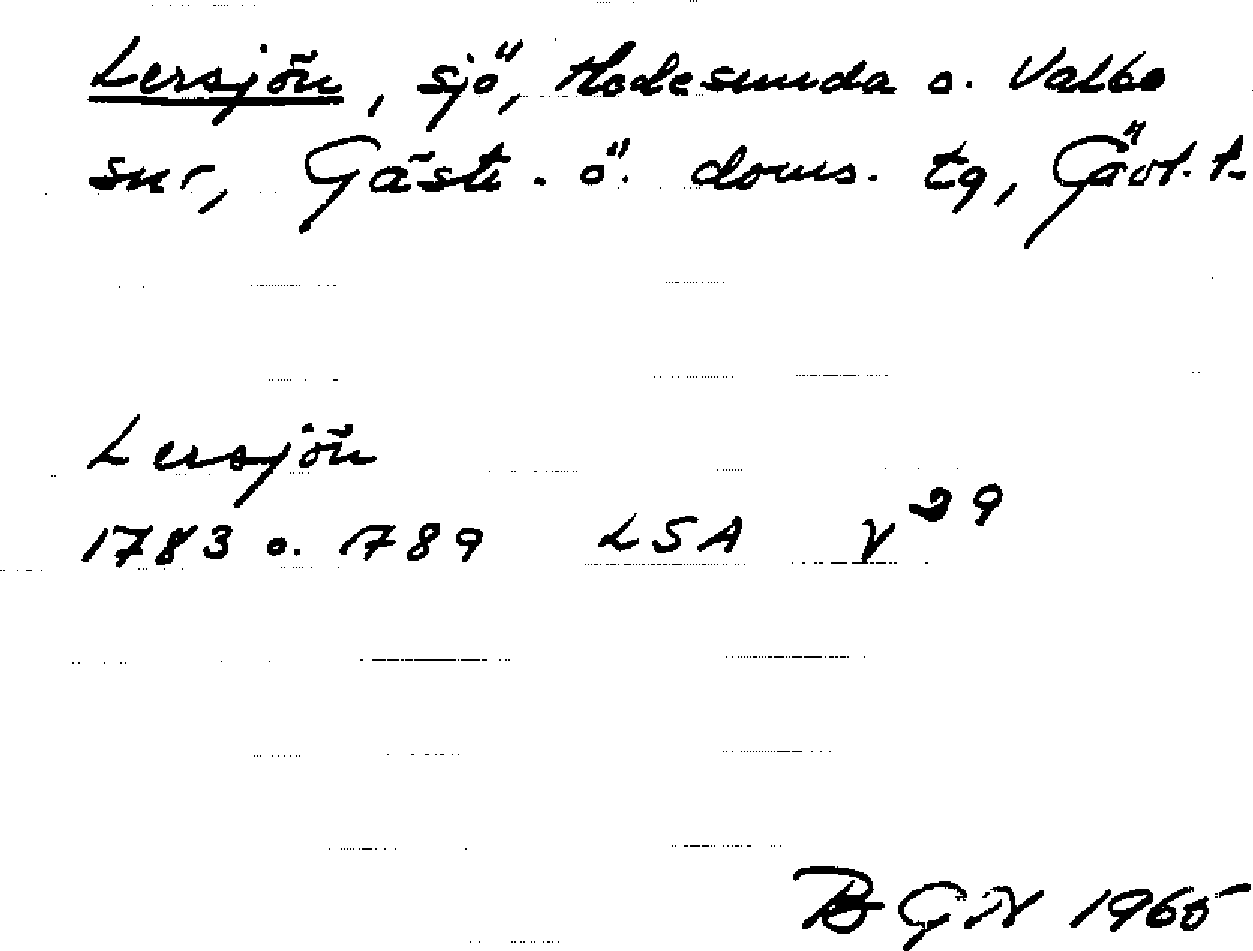 Lersjön, sjö, Hedesunda o. Valbo
snr, Gästr. ö. doms. tg, Gävl. l.
Lersjön
1783 o. 789 LSA γ 29
BGN 1965